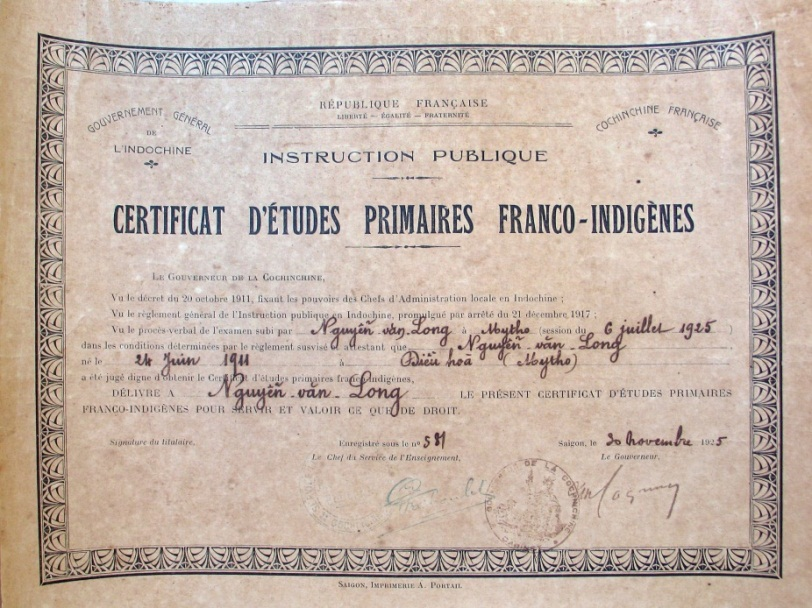 RÉPUBLIQUE FRANÇAISE
LIBERTÉ – ÉGALITÉ – FRATERNITÉ
GOUVERNEMENT GÉNÉRAL
DE
L'INDOCHINE
COCHINCHINE FRANÇAISE
INSTRUCTION PUBLIQUE
CERTIFICAT D'ÉTUDES PRIMAIRES FRANCO-INDIGÈNES
LE GOUVERNEUR DE LA COCHINCHINE,
Vu le décret du 20 octobre 1911, fixant les pouvoirs des Chefs d'Administration locale en Indochine ;
Vu le règlement général de l'Instruction publique en Indochine, promulgué par arrêté du 21 décembre 1917 ;
Vu le procès-verbal de l'examen subi par Nguyễn văn Long à Mytho (session du 6 juillet 1925 )
dans les conditions déterminées par le règlement susvisé attestant que Nguyễn văn Long
né le 24 Juin 1911 à Điều hoà (Mytho)
a été jugé digne d'obtenir le Certificat d'études primaires franco-indigènes,
DÉLIVRE A Nguyễn văn Long LE PRÉSENT CERTIFICAT D'ÉTUDES PRIMAIRES
FRANCO-INDIGÈNES POUR SERVIR ET VALOIR CE QUE DE DROIT.
Signature du titulaire, Enregistré sous le n° 581 Saigon, le 30 Novembre 1925
Le Chef du Service de l'Enseignement, Le Gouverneur,
DE LA COCHINCHINE
SAIGON, IMPRIMERIE A. PORTAIL